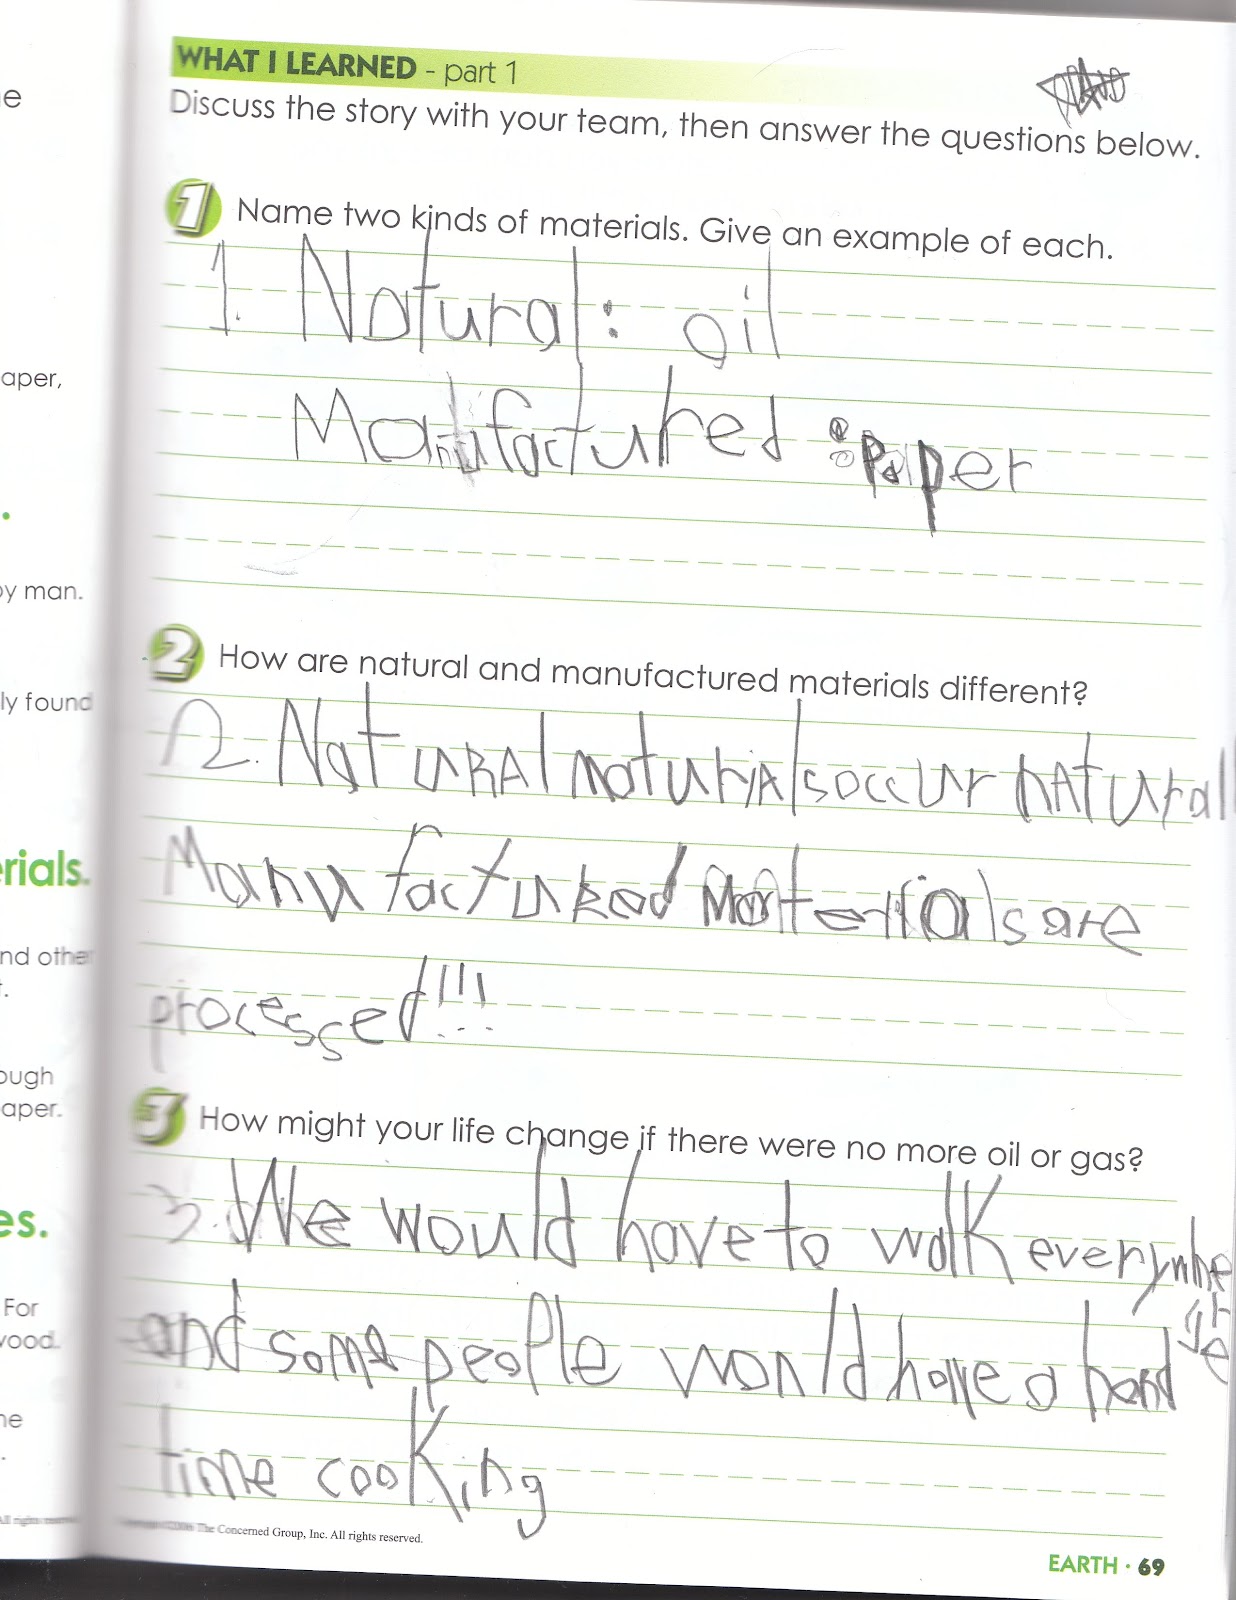 WHAT I LEARNED - part 1
Discuss the story with your team, then answer the questions below.
1 Name two kinds of materials. Give an example of each.
1. Natural: oil
Manufactured : paper
2 How are natural and manufactured materials different?
2. Natural maturials occur natural
Manufactured materials are
processed!!!
3 How might your life change if there were no more oil or gas?
3. We would have to walk everywhe
re
and some people would have a hard
time cooking
2006 The Concerned Group, Inc. All rights reserved.
EARTH · 69
e
aper,
.
by man.
ly found
erials.
nd other
t.
ough
aper.
es.
For
wood.
he
.
All rights